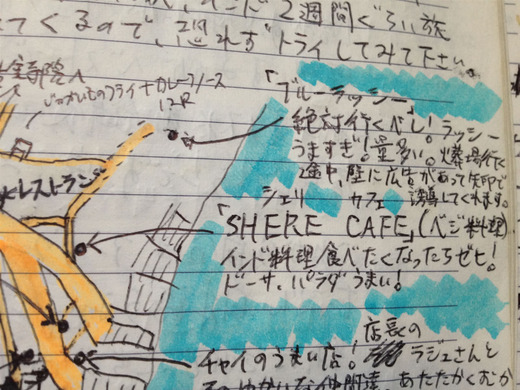 インド2週間ぐらい旅
てくるので、恐れずトライしてみて下さい。
じゃがいものフライ+カレーソース
12R
「ブルーラッシー
絶対行くべし!ラッシー
うますぎ!量多い。火葬場行く
途中、壁に広告があって矢印で
誘導してくれます。
レストラン
シェリ カフェ
「SHERE CAFE」(ベジ料理)
インド料理食べたくなったらゼヒ!
ドーサ、パラダうまい!
店長の
チャイのうまい店! ラジェさんと
仲間達 あたたかくむか